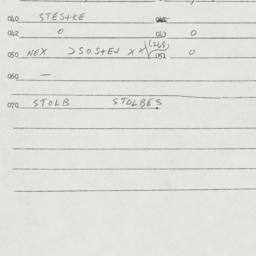 040 STESTKE 041
042 0 043 0
050 NEX SOSTEN XX (IGB) 051 0
060 —
070 STOLB STOLBES